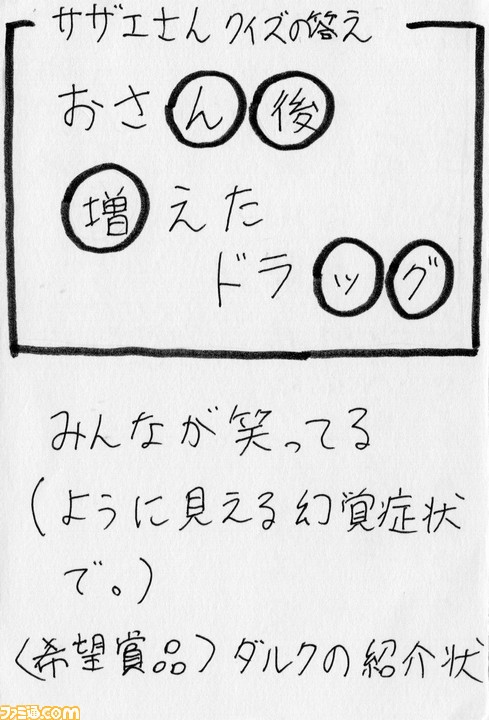 サザエさんクイズの答え
おさん後
増えた
ドラッグ
みんなが笑ってる
(ように見える幻覚症状
で。)
〈希望賞品〉ダルクの紹介状
ファミ通.com